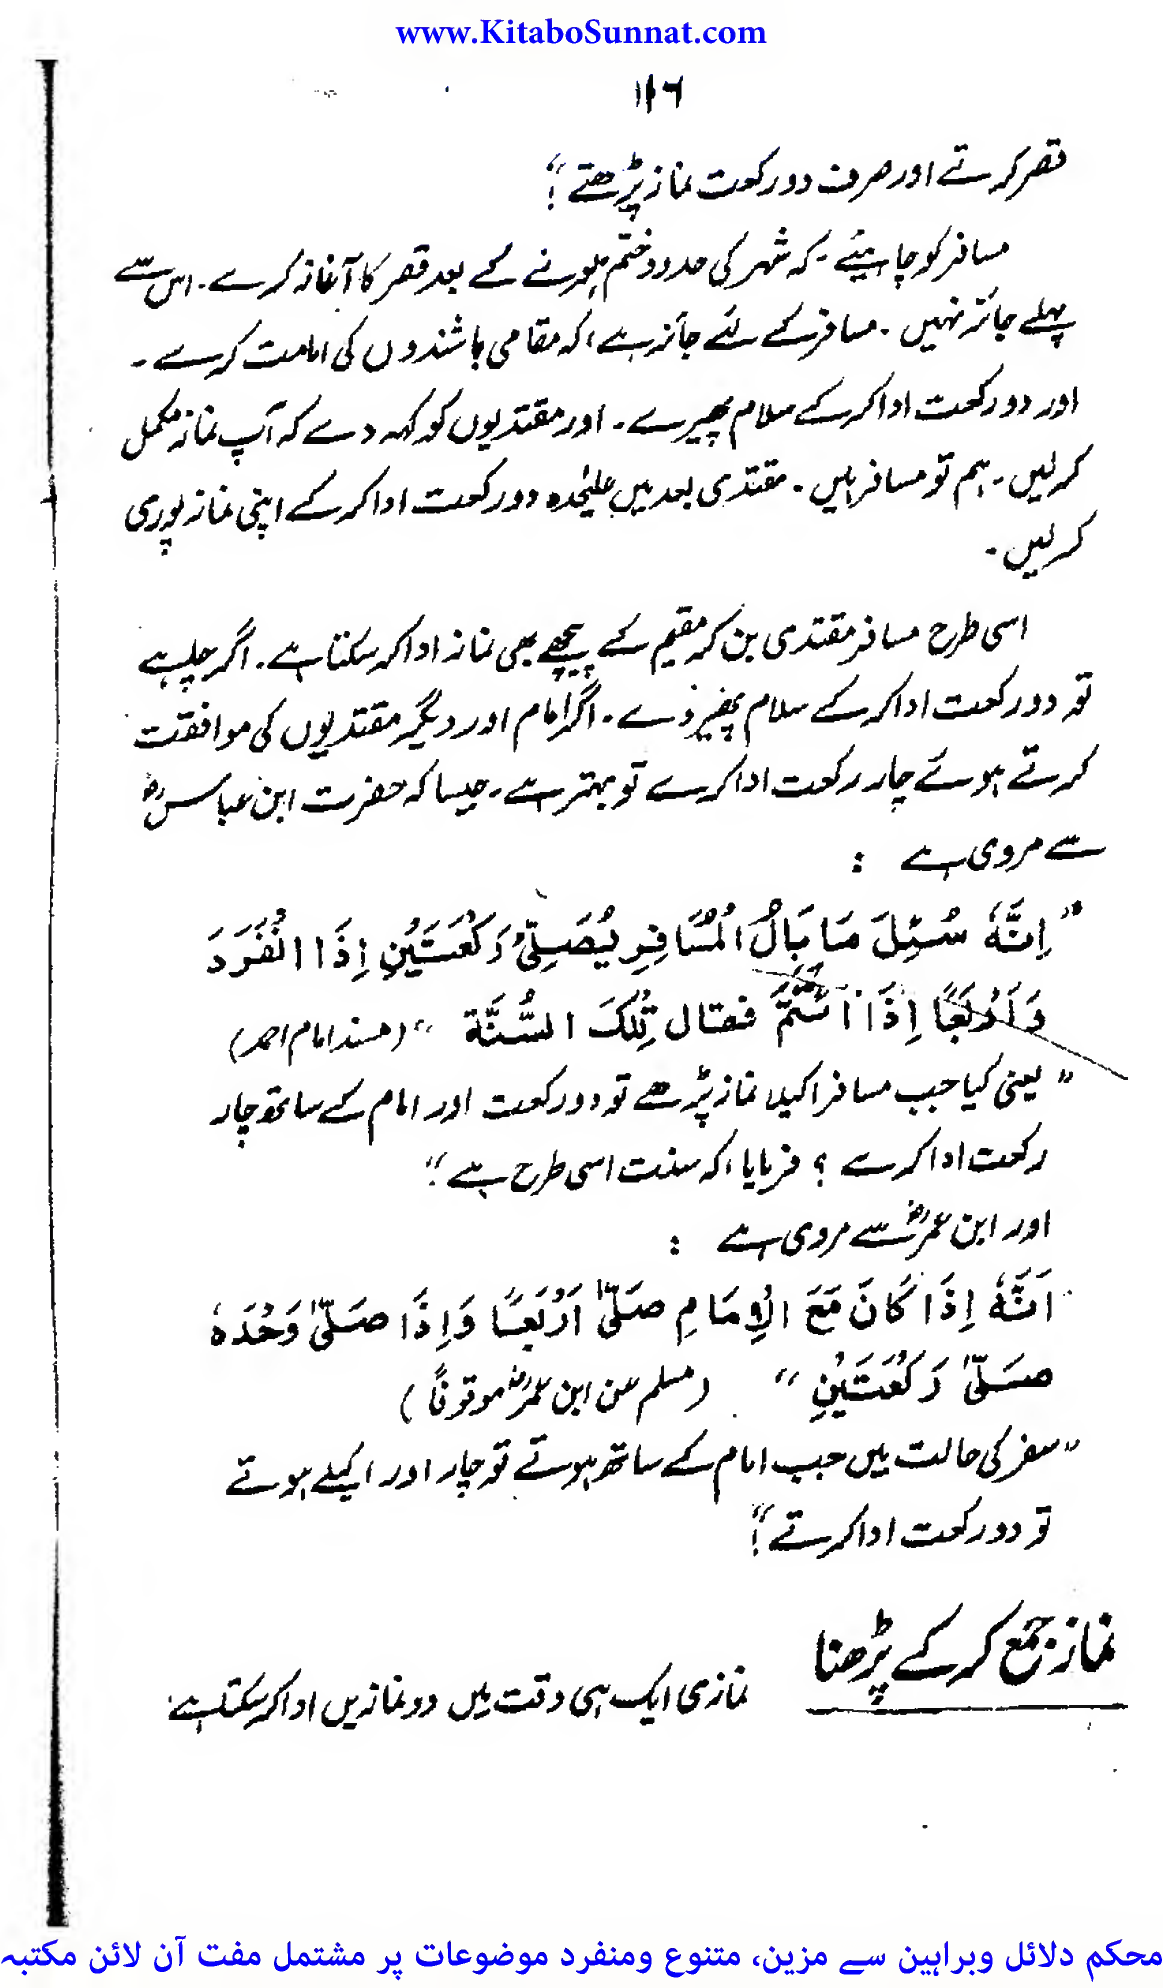 www.KitaboSunnat.com
۱۱۶
قصر کرتے اور صرف دو رکعت نماز پڑھتے“؛
مسافر کو چاہیئے۔ کہ شہر کی حدود ختم ہونے کے بعد قصر کا آغاز کرے۔ اس سے
پہلے جائز نہیں۔ مسافر کے لئے جائز ہے، کہ مقامی باشندوں کی امامت کرے۔
اور دو رکعت ادا کر کے سلام پھیرے۔ اور مقتدیوں کو کہہ دے کہ آپ نماز مکمل
کر لیں۔ ہم تو مسافر ہیں۔ مقتدی بعد میں علیٰحدہ دو رکعت ادا کر کے اپنی نماز پوری
کر لیں۔
اسی طرح مسافر مقتدی بن کر مقیم کے پیچھے بھی نماز ادا کر سکتا ہے۔ اگر چاہے
تو دو رکعت ادا کر کے سلام پھیر دے۔ اگر امام اور دیگر مقتدیوں کی موافقت
کرتے ہوئے چار رکعت ادا کرے تو بہتر ہے۔ جیسا کہ حضرت ابن عباسؓ
سے مروی ہے :
”اِنَّہٗ سُئِلَ مَا بَالُ الْمُسَافِرِ یُصَلِّیْ رَکْعَتَیْنِ اِذَا انْفَرَدَ
وَاَرْبَعًا اِذَا ائْتَمَّ فقال تِلْکَ السُّنَّة“ (مسند امام احمد)
”یعنی کیا جب مسافر اکیلا نماز پڑھے تو دو رکعت اور امام کے ساتھ چار
رکعت ادا کرے ؟ فرمایا، کہ سنت اسی طرح ہے“؛
اور ابن عمرؓ سے مروی ہے :
اَنَّہٗ اِذَا کَانَ مَعَ الْاِمَامِ صَلّٰی اَرْبَعًا وَاِذَا صَلّٰی وَحْدَہٗ
صَلّٰی رَکْعَتَیْنِ“ (مسلم عن ابن عمرؓ موقوفاً)
”سفر کی حالت میں جب امام کے ساتھ ہوتے تو چار اور اکیلے ہوتے
تو دو رکعت ادا کرتے“؛
نماز جمع کر کے پڑھنا
نمازی ایک ہی وقت میں دو نمازیں ادا کر سکتا ہے؛
محکم دلائل وبراہین سے مزین، متنوع ومنفرد موضوعات پر مشتمل مفت آن لائن مکتبہ